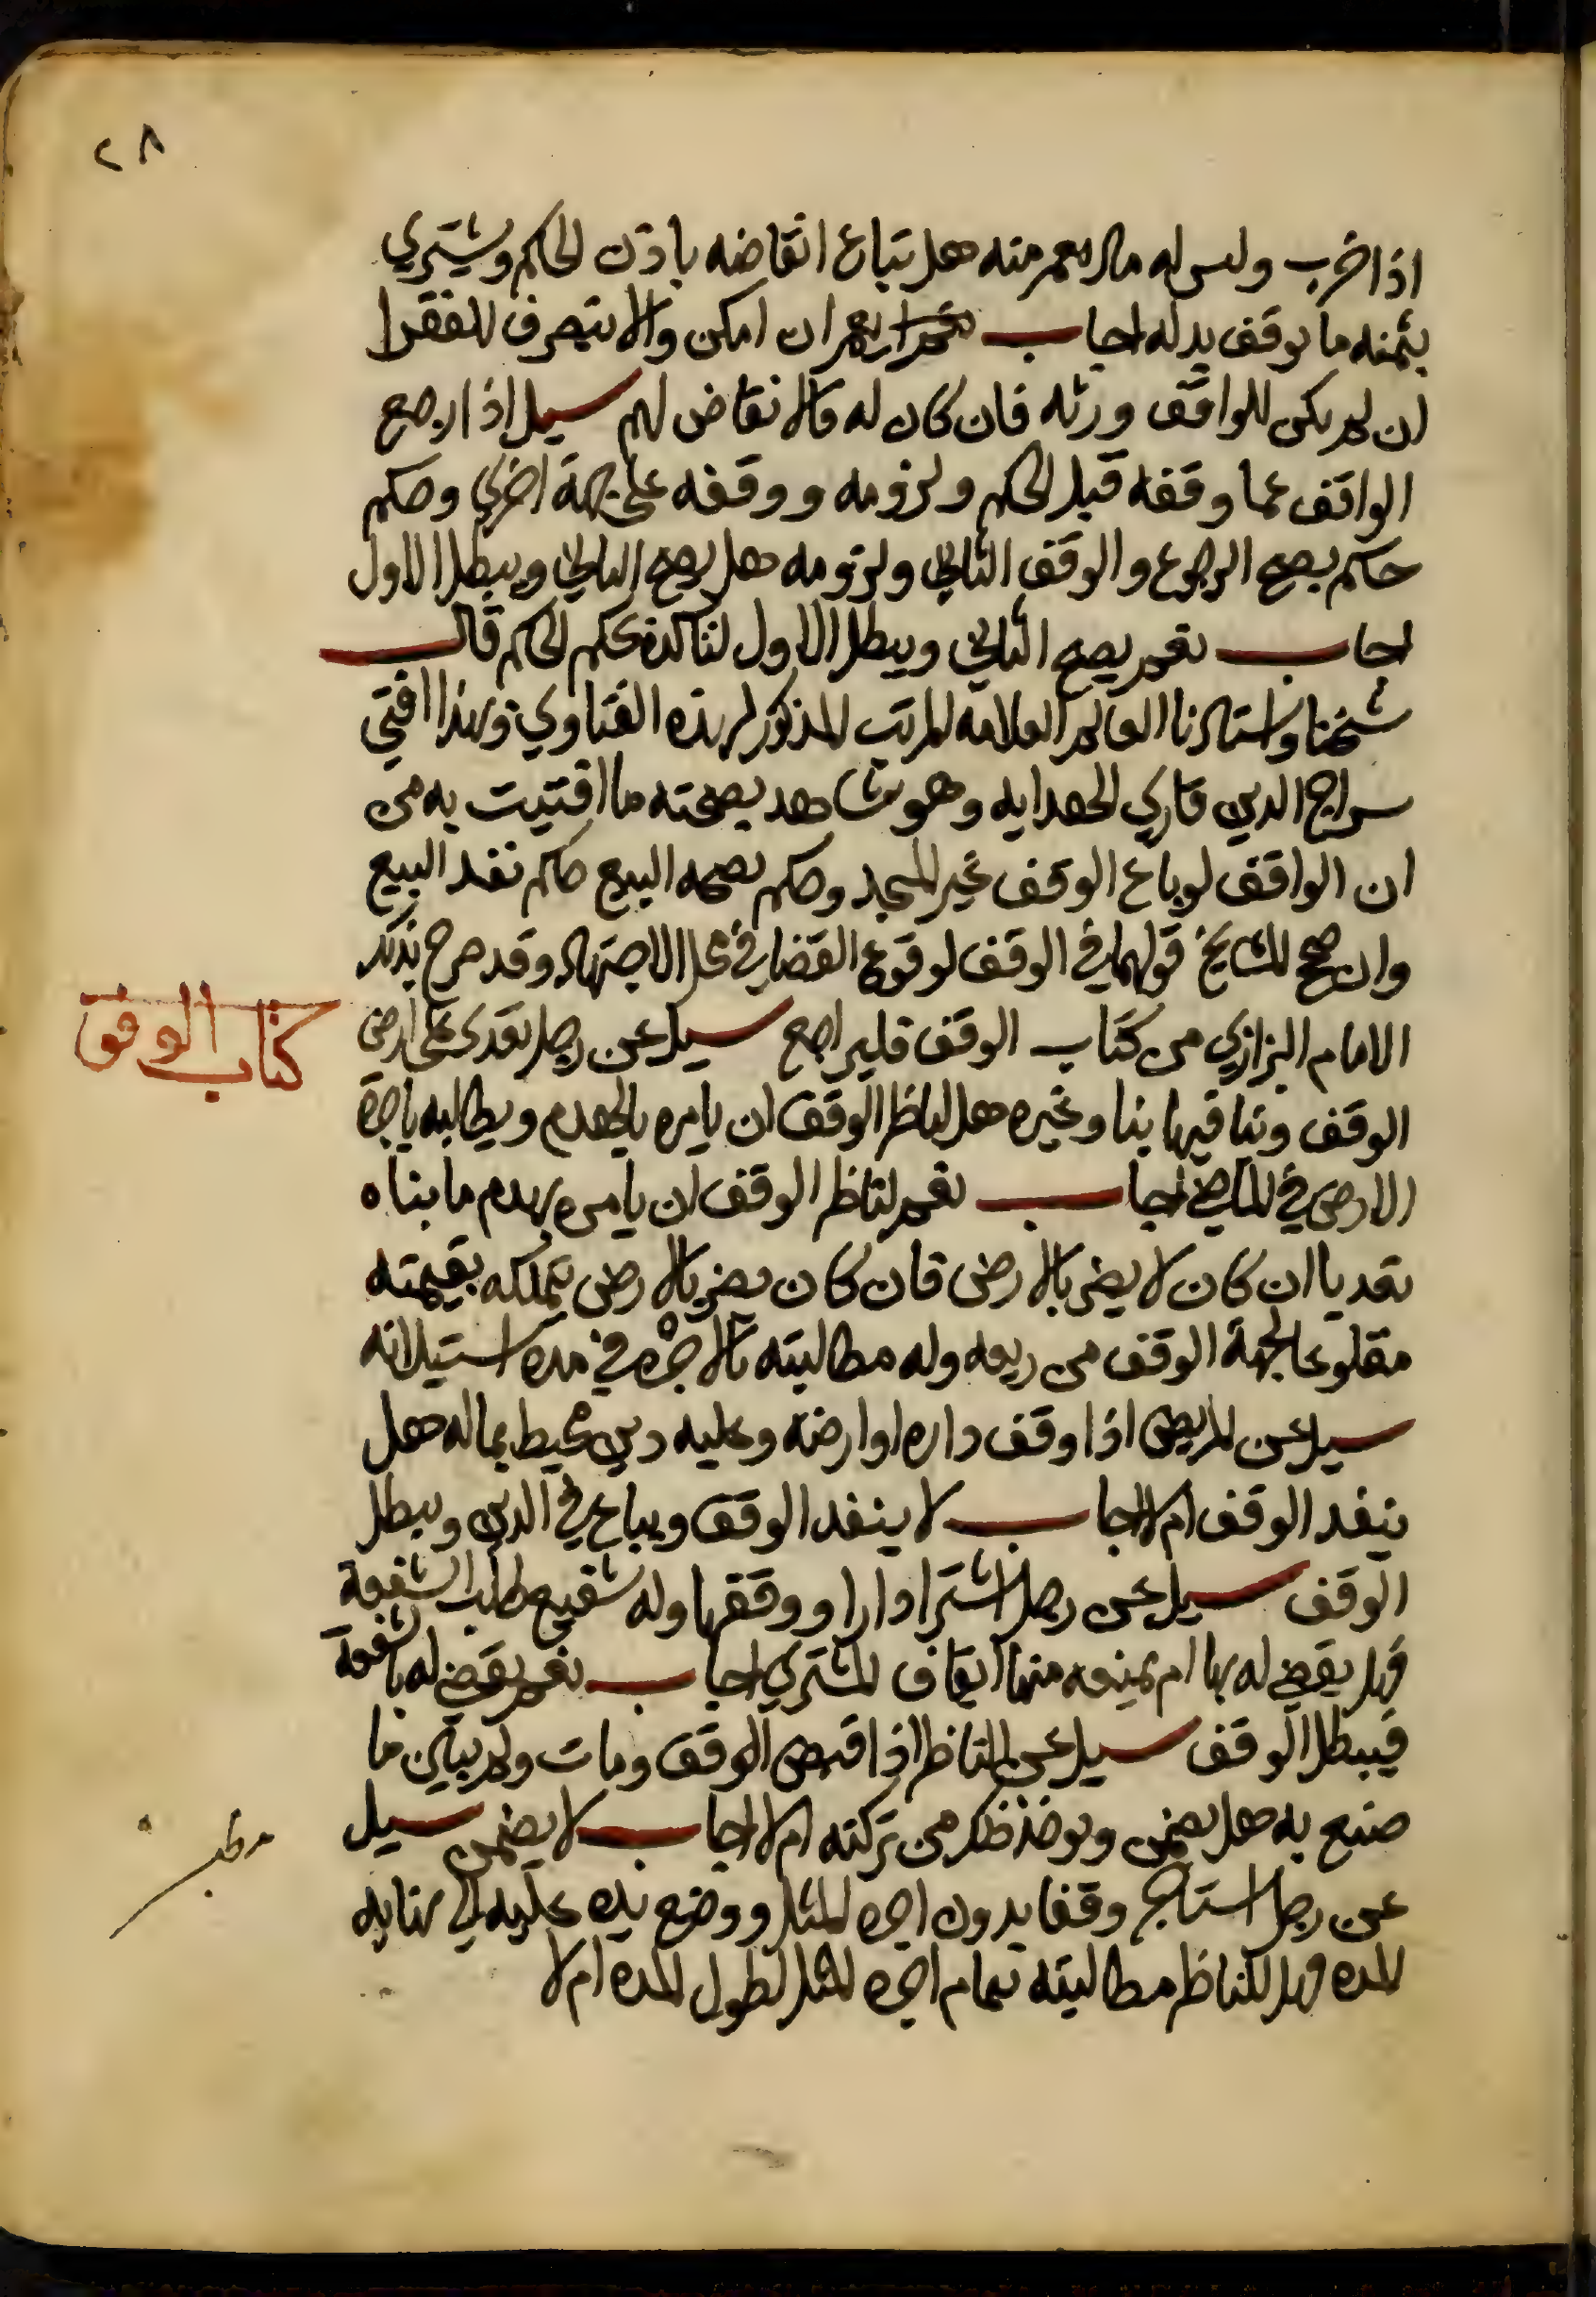 ٢٨
اذا خرب وليس له مال يعمر منه هل تباع انقاضه باذن الحاكم ويشتري
بثمنه ما يوقف بدله اجاب نعم ان امكن والا يتصرف للفقرا
ان لم يكن للواقف ورثه فان كان له فالانقاض لهم سيل اذا رجع
الواقف عما وقفه قبل الحكم ولزومه ووقفه على جهة اخرى وحكم
حاكم بصحة الرجوع والوقف الثاني ولزومه هل يصح الثاني ويبطل الاول
اجاب نعم يصح الثاني ويبطل الاول لتاكده بحكم الحاكم قال
شيخنا واستاذنا العالم العلامه المرتب المذكور لهذه الفتاوي وبهذا افتى
سراج الدين قاري الهدايه وهو شاهد بصحته ما افتيت به من
ان الواقف لو باع الوقف غير المسجد وحكم بصحه البيع حاكم نفد البيع
وان صحح المشايخ قولهما في الوقف لوقوع القضا في محل الاجتهاد وقد صرح بذلك
الامام البزازي من كتاب الوقف فليراجع سيل عن رجل تعدى على ارض
كتاب الوقف
الوقف وبنا فيها بنا وغيره هل لناظر الوقف ان يامره بالهدم ويطالبه باجرة
الارض في الماضي اجاب نعم لناظر الوقف ان يامره بهدم ما بناه
تعديا ان كان لا يضر بالارض فان كان يضر بالارض يتملكه بقيمته
مقلوعا لجهة الوقف من ريعه وله مطالبته بالاجره في مده استيلائه
سيل عن المريض اذا وقف داره او ارضه وعليه دين محيط بماله هل
ينفد الوقف ام لا اجاب لا ينفد الوقف ويباع في الدين ويبطل
الوقف سيل عن رجل اشترا دارا ووقفها وله شفيع طلب الشفعة
فهل يقضي له بها ام يمنعه منها ايقاف المشتري اجاب نعم يقضي له بالشفعة
فيبطل الوقف سيل عن الناظر اذا قبض الوقف ومات ولم يبين ما
صنع به هل يضمن ويوخذ من تركته ام لا اجاب لا يضمن سيل
مطلب
عن رجل استاجر وقفا بدون اجره المثل ووضع يده عليه الى نهايه
المده فهل للناظر مطالبته بتمام اجره المثل لطول المده ام لا